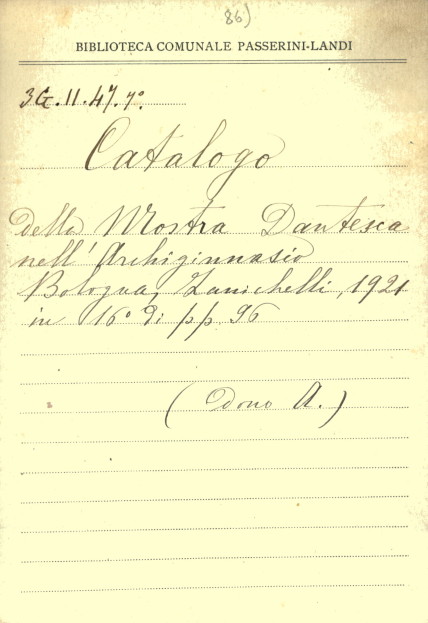 86)
BIBLIOTECA COMUNALE PASSERINI-LANDI
3G.11.47.7º.
Catalogo
della Mostra Dantesca
nell' Archiginnasio
Bologna, Zanichelli, 1921
in 16º di pp. 96
(Dono A.)